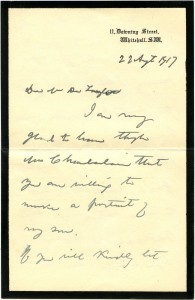 11, Downing Street,
Whitehall, S.W.
22 Sept 1917
Dear Mr De
I am very
glad to learn through
Mrs Chamberlain that
you are willing to
make a portrait of
my son.
If you will kindly let